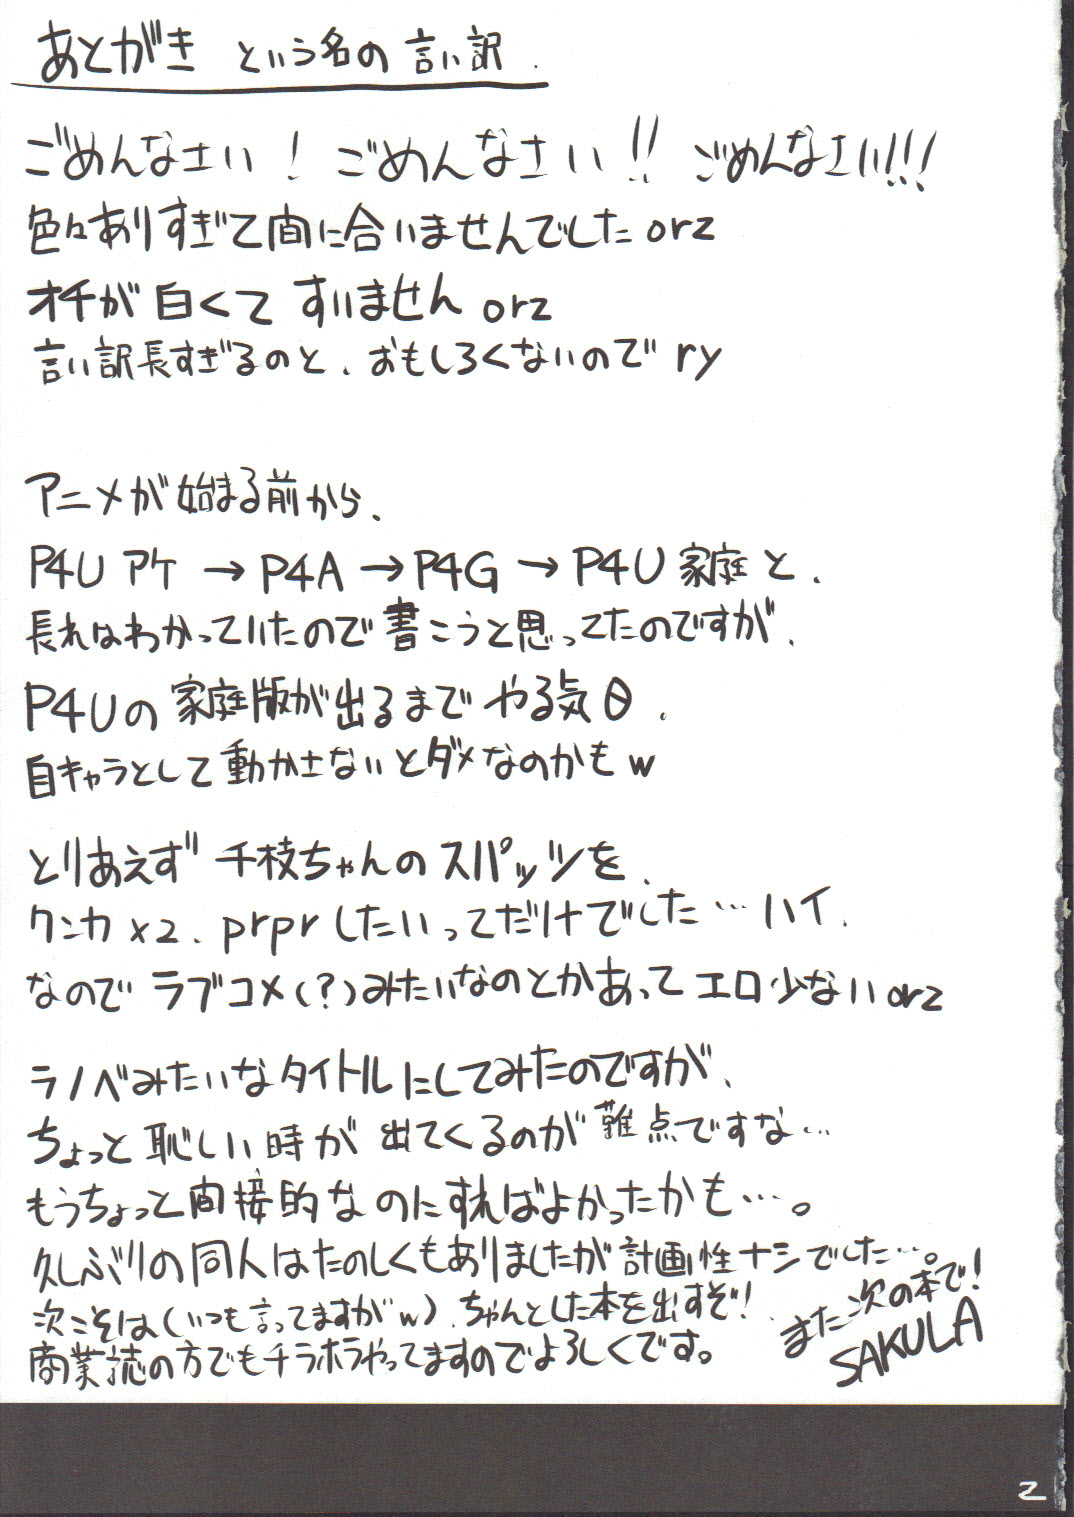 あとがき という名の言い訳.
ごめんなさい! ごめんなさい!! ごめんなさい!!!
色々ありすぎて間に合いませんでした orz
オチが白くて すいません orz
言い訳長すぎるのと、おもしろくないので ry
アニメが始まる前から、
P4U アケ → P4A → P4G → P4U 家庭と、
長れはわかっていたので書こうと思ってたのですが、
P4Uの家庭版が出るまで やる気θ.
自キャラとして動かさないとダメなのかもw
とりあえず 千枝ちゃんのスパッツを、
クンカ×2、prprしたいってだけでした…ハイ.
なので ラブコメ(?)みたいなのとかあって エロ少ないorz
ラノベみたいなタイトルにしてみたのですが、
ちょっと恥しい時が出てくるのが難点ですな…
もうちょっと間接的なのにすればよかったかも…。
久しぶりの同人はたのしくもありましたが計画性ナシでした…。
次こそは(いつも言ってますがw)、ちゃんとした本を出すぞ!
商業誌の方でもチラホラやってますのでよろしくです。
また次の本で!
SAKULA
2